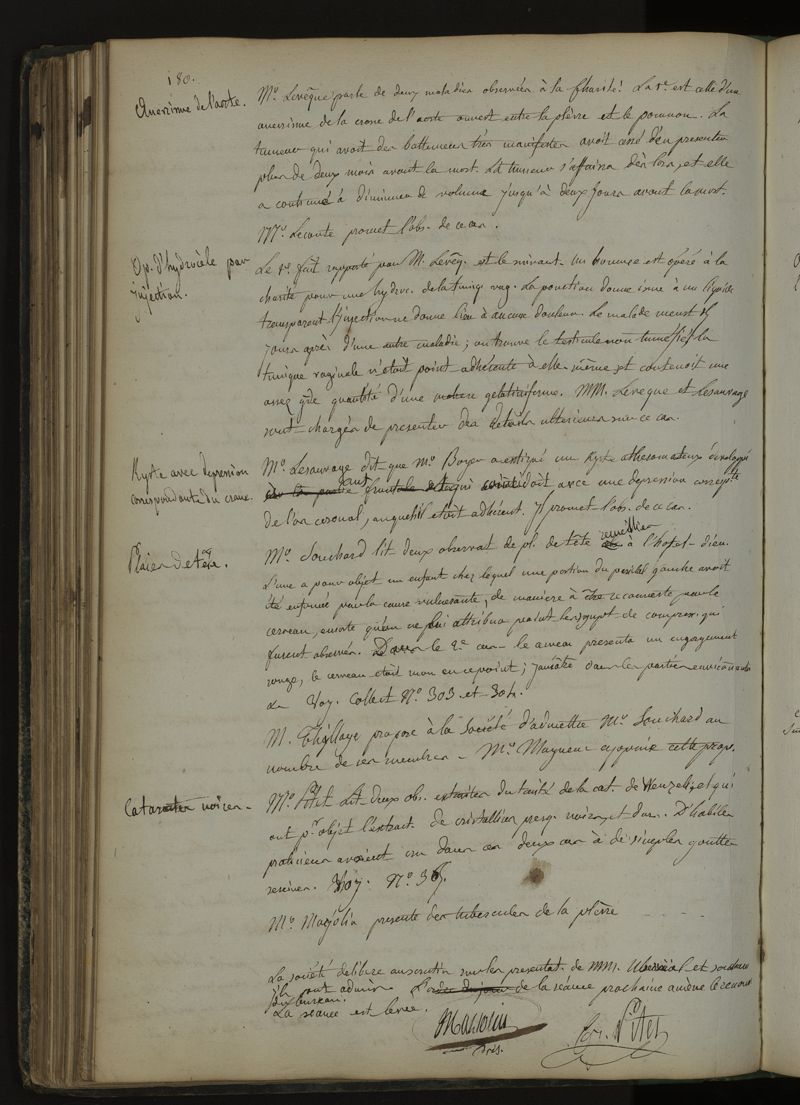 180.
Anevrisme de l'aorte.
Mr. Levêque parle de deux maladies observées à la Charité: La 1re. est celle d'un
anevrisme de la crosse de l'aorte ouvert entre la plèvre et le poumon. La
tumeur qui avoit des battemens très manifestes avoit cessé d'en presenter
plus de deux mois avant la mort. La tumeur s'affaissa dès lors, et elle
a continué à diminuer de volume jusqu'à deux jours avant la mort.
Mr. Leconte promet l'obs. de ce cas.
Op. d'hydrocèle par
injection.
Le 2e. fait rapporté par M. Levêq. est le suivant. Un homme est opéré à la
charité pour une hydroc. de la tuniq. vag. La ponction donne issue à un liquide
transparent l'injection ne donne lieu à aucune douleur. Le malade meurt
jours après d'une autre maladie; on trouve le testicule non tuméfié, la
tunique vaginale n'étoit point adhérente à elle-même et contenoit une
assez gde. quantité d'une matiere gelatiniforme. MM. Leveque et Lesauvage
sont chargés de presenter des détails ulterieurs sur ce cas.
Kyste avec depression
correspondante du crane.
Mr. Lesauvage dit que Mr. Boyer a extirpé un kyste athéromateux développé
qui coincidoit avec une depression
de l'os coronal, auquel il étoit adhérent. Il promet l'obs. de ce cas.
Plaies de tête.
Mr. Souchard lit deux observat. de pl. de tête recueillies à l'hotel-dieu.
L'une a pour objet un enfant chez lequel une portion du pariétal gauche avoit
été enfoncée par la cause vulnerante, de maniere à être recouverte par le
cerveau, ensorte qu'on ne lui attribua point les sympt. de compress. qui
furent observés. Dans le 2e. cas le cerveau presenta un engorgement
rouge, le cerveau étoit mou en ce point; dans les parties environnantes
Voy. Collect No. 303 et 304.
M. Thillaye propose à la Société d'admettre Mr. Souchard au
nombre de ses membres. Mr. appuie cette prop.
Cataractes noires.
Mr. Petit lit deux obs. extraites du traité de la cat. de Wenzel, et qui
ont pr. objet l'extract. de cristallins presq. noirs, et durs. D'habiles
praticiens avoient cru dans ces deux cas à de simples gouttes
sereines. Voy. No.
Mr. Marjolin presente des tubercules de la plèvre
La société délibere au scrutin sur les presentat. de MM. et Souchard
ils sont admis. L'ordre du jour de la séance prochaine amène le renouv
du bureau.
La séance est levée.
Marjolin
Prés.